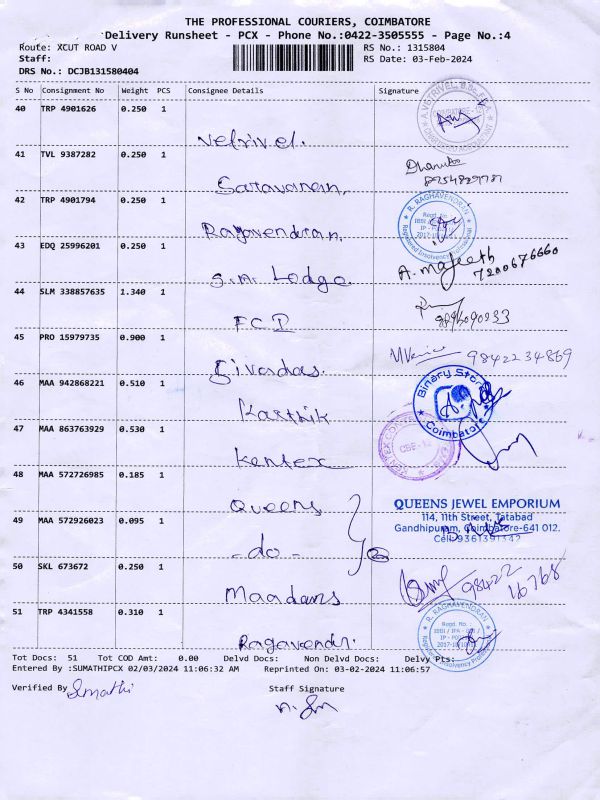 THE PROFESSIONAL COURIERS, COIMBATORE
Delivery Runsheet - PCX - Phone No.:0422-3505555 - Page No.:4
Route: XCUT ROAD V
RS No.: 1315804
Staff:
RS Date: 03-Feb-2024
DRS No.: DCJB131580404
S No Consignment No Weight PCS Consignee Details Signature
40 TRP 4901626 0.250 1
Vetrivel.
41 TVL 9387282 0.250 1
Saravanan.
42 TRP 4901794 0.250 1
Ragavendran.
R. RAGHAVENDRAN
Registered Insolvency Professional
43 EDQ 25996201 0.250 1
S.N. Lodge.
A. Majeeth
7200676660
44 SLM 338857635 1.340 1
FCI
45 PRO 15979735 0.900 1
Sivadas.
9842234869
46 MAA 942868221 0.510 1
Karthik
Binary Store
Coimbatore
47 MAA 863763929 0.530 1
Kentex
CBE-12
48 MAA 572726985 0.185 1
Queens
QUEENS JEWEL EMPORIUM
114, 11th Street, Tatabad
Gandhipuram, Coimbatore-641 012.
Cell: 9361391342
49 MAA 572926023 0.095 1
- do -
50 SKL 673672 0.250 1
Maadans
98422
16768
51 TRP 4341558 0.310 1
Ragavendr.
R. RAGHAVENDRAN
Tot Docs: 51 Tot COD Amt: 0.00 Delvd Docs: Non Delvd Docs: Delvy Pts:
Entered By :SUMATHIPCX 02/03/2024 11:06:32 AM Reprinted On: 03-02-2024 11:06:57
Verified By Sumathi
Staff Signature